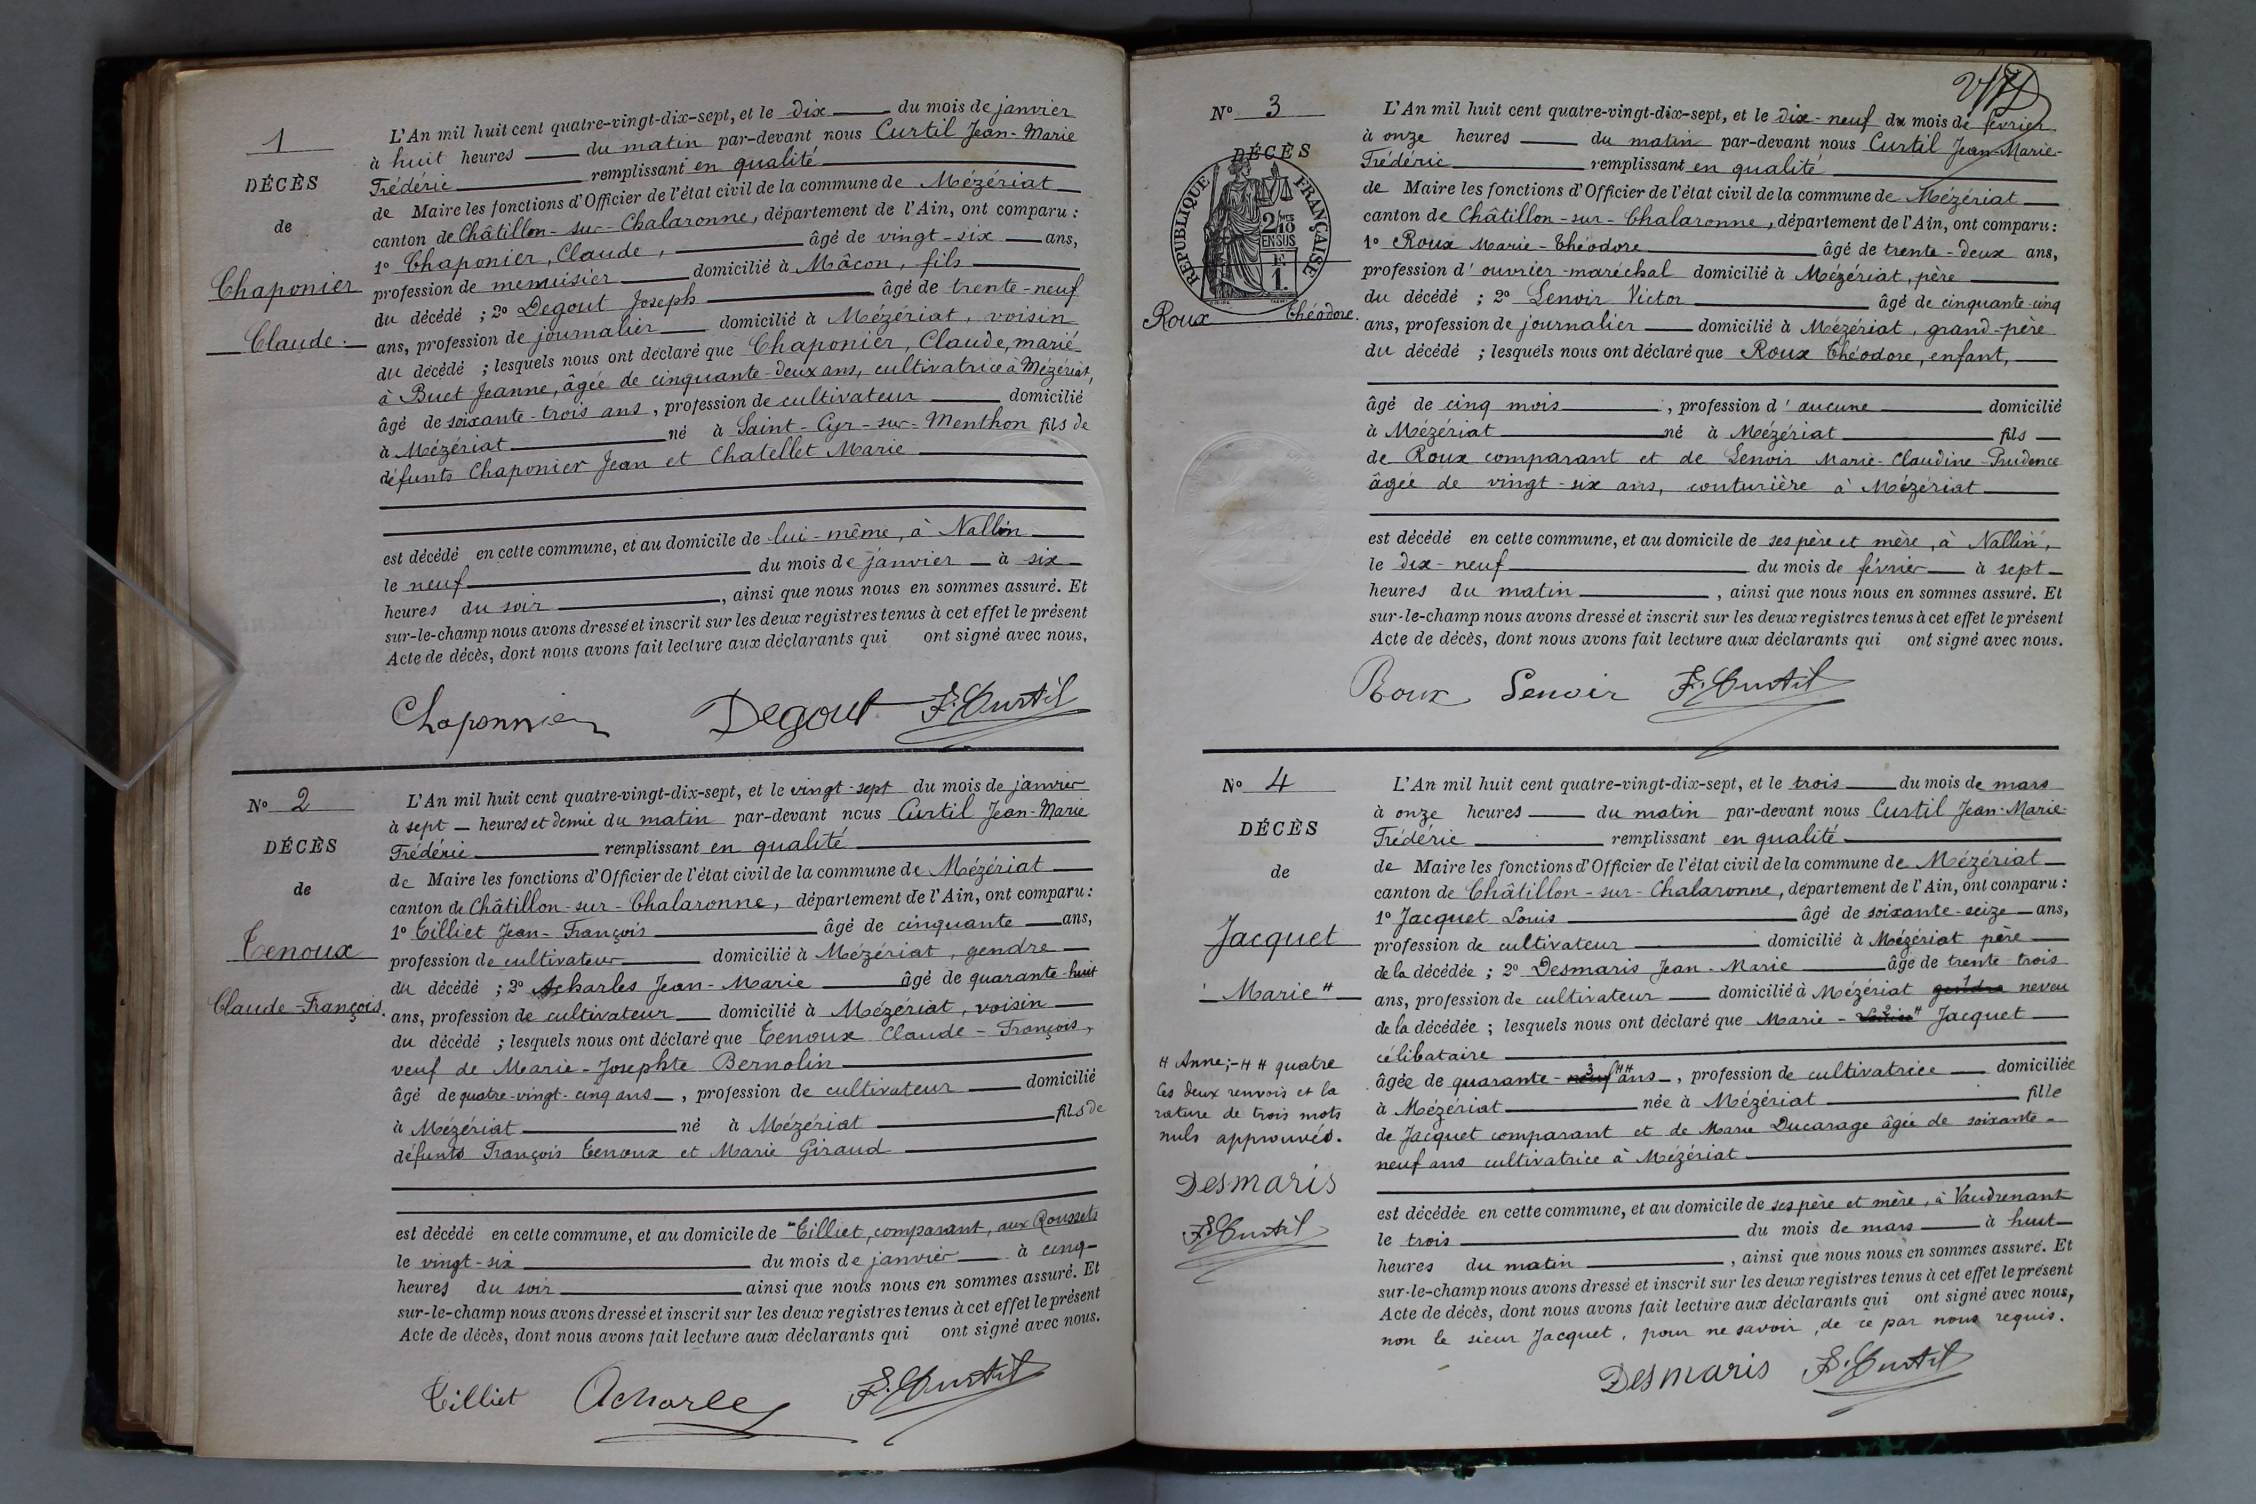 1
DÉCÈS
de
Chaponier
Claude.
L'An mil huit cent quatre-vingt-dix-sept, et le dix du mois de janvier
à huit heures du matin par-devant nous Curtil Jean-Marie
Frédéric remplissant en qualité
de Maire les fonctions d'Officier de l'état civil de la commune de Mézériat
canton de Châtillon-sur-Chalaronne, département de l'Ain, ont comparu :
1º Chaponier, Claude, âgé de vingt-six ans,
profession de menuisier domicilié à Mâcon, fils
du décédé ; 2º Degout Joseph âgé de trente-neuf
ans, profession de journalier domicilié à Mézériat, voisin
du décédé ; lesquels nous ont déclaré que Chaponier, Claude, marié
à Buet Jeanne, âgée de cinquante-deux ans, cultivatrice à Mézériat,
âgé de soixante-trois ans, profession de cultivateur domicilié
à Mézériat né à Saint-Cyr-sur-Menthon fils de
défunts Chaponier Jean et Chatellet Marie
est décédé en cette commune, et au domicile de lui-même, à Nallin
le neuf du mois de janvier à six
heures du soir, ainsi que nous nous en sommes assuré. Et
sur-le-champ nous avons dressé et inscrit sur les deux registres tenus à cet effet le présent
Acte de décès, dont nous avons fait lecture aux déclarants qui ont signé avec nous.
Chaponnier Degout F. Curtil
Nº 2
DÉCÈS
de
Tenoux
Claude-François.
L'An mil huit cent quatre-vingt-dix-sept, et le vingt-sept du mois de janvier
à sept heures et demie du matin par-devant nous Curtil Jean-Marie
Frédéric remplissant en qualité
de Maire les fonctions d'Officier de l'état civil de la commune de Mézériat
canton de Châtillon-sur-Chalaronne, département de l'Ain, ont comparu :
1º Tilliet Jean-François âgé de cinquante ans,
profession de cultivateur domicilié à Mézériat, gendre
du décédé ; 2º Acharles Jean-Marie âgé de quarante-huit
ans, profession de cultivateur domicilié à Mézériat, voisin
du décédé ; lesquels nous ont déclaré que Tenoux Claude-François,
veuf de Marie-Josephte Bernolin
âgé de quatre-vingt-cinq ans, profession de cultivateur domicilié
à Mézériat né à Mézériat fils de
défunts François Tenoux et Marie Giraud
est décédé en cette commune, et au domicile de Tilliet, comparant, aux Roussets
le vingt-six du mois de janvier à cinq
heures du soir ainsi que nous nous en sommes assuré. Et
sur-le-champ nous avons dressé et inscrit sur les deux registres tenus à cet effet le présent
Acte de décès, dont nous avons fait lecture aux déclarants qui ont signé avec nous.
Tilliet Acharles F. Curtil
Nº 3
DÉCÈS
RÉPUBLIQUE FRANÇAISE
2/10 EN SUS
F. 1.
Roux Théodore.
L'An mil huit cent quatre-vingt-dix-sept, et le dix-neuf du mois de février
à onze heures du matin par-devant nous Curtil Jean-Marie-
Frédéric remplissant en qualité
de Maire les fonctions d'Officier de l'état civil de la commune de Mézériat
canton de Châtillon-sur-Chalaronne, département de l'Ain, ont comparu :
1º Roux Marie-Théodore âgé de trente-deux ans,
profession d'ouvrier-maréchal domicilié à Mézériat, père
du décédé ; 2º Lenoir Victor âgé de cinquante-cinq
ans, profession de journalier domicilié à Mézériat, grand-père
du décédé ; lesquels nous ont déclaré que Roux Théodore, enfant,
âgé de cinq mois, profession d'aucune domicilié
à Mézériat né à Mézériat fils
de Roux comparant et de Lenoir Marie-Claudine-Prudence
âgée de vingt-six ans, couturière à Mézériat
est décédé en cette commune, et au domicile de ses père et mère, à Nallin,
le dix-neuf du mois de février à sept
heures du matin, ainsi que nous nous en sommes assuré. Et
sur-le-champ nous avons dressé et inscrit sur les deux registres tenus à cet effet le présent
Acte de décès, dont nous avons fait lecture aux déclarants qui ont signé avec nous.
Roux Lenoir F. Curtil
Nº 4
DÉCÈS
de
Jacquet
Marie"
L'An mil huit cent quatre-vingt-dix-sept, et le trois du mois de mars
à onze heures du matin par-devant nous Curtil Jean-Marie-
Frédéric remplissant en qualité
de Maire les fonctions d'Officier de l'état civil de la commune de Mézériat
canton de Châtillon-sur-Chalaronne, département de l'Ain, ont comparu :
1º Jacquet Louis âgé de soixante-seize ans,
profession de cultivateur domicilié à Mézériat père
de la décédée ; 2º Desmaris Jean-Marie âgé de trente-trois
ans, profession de cultivateur domicilié à Mézériat gendre neveu
de la décédée ; lesquels nous ont déclaré que Marie- Jacquet
célibataire
âgée de quarante-neuf ans, profession de cultivatrice domiciliée
à Mézériat née à Mézériat fille
de Jacquet comparant et de Marie Ducarage âgée de soixante-
neuf ans cultivatrice à Mézériat
est décédée en cette commune, et au domicile de ses père et mère, à Vaudrenant
le trois du mois de mars à huit
heures du matin, ainsi que nous nous en sommes assuré. Et
sur-le-champ nous avons dressé et inscrit sur les deux registres tenus à cet effet le présent
Acte de décès, dont nous avons fait lecture aux déclarants qui ont signé avec nous,
non le sieur Jacquet, pour ne savoir, de ce par nous requis.
Desmaris F. Curtil
# Anne;-## quatre
Ces deux renvois et la
rature de trois mots
nuls approuvés.
Desmaris
F. Curtil